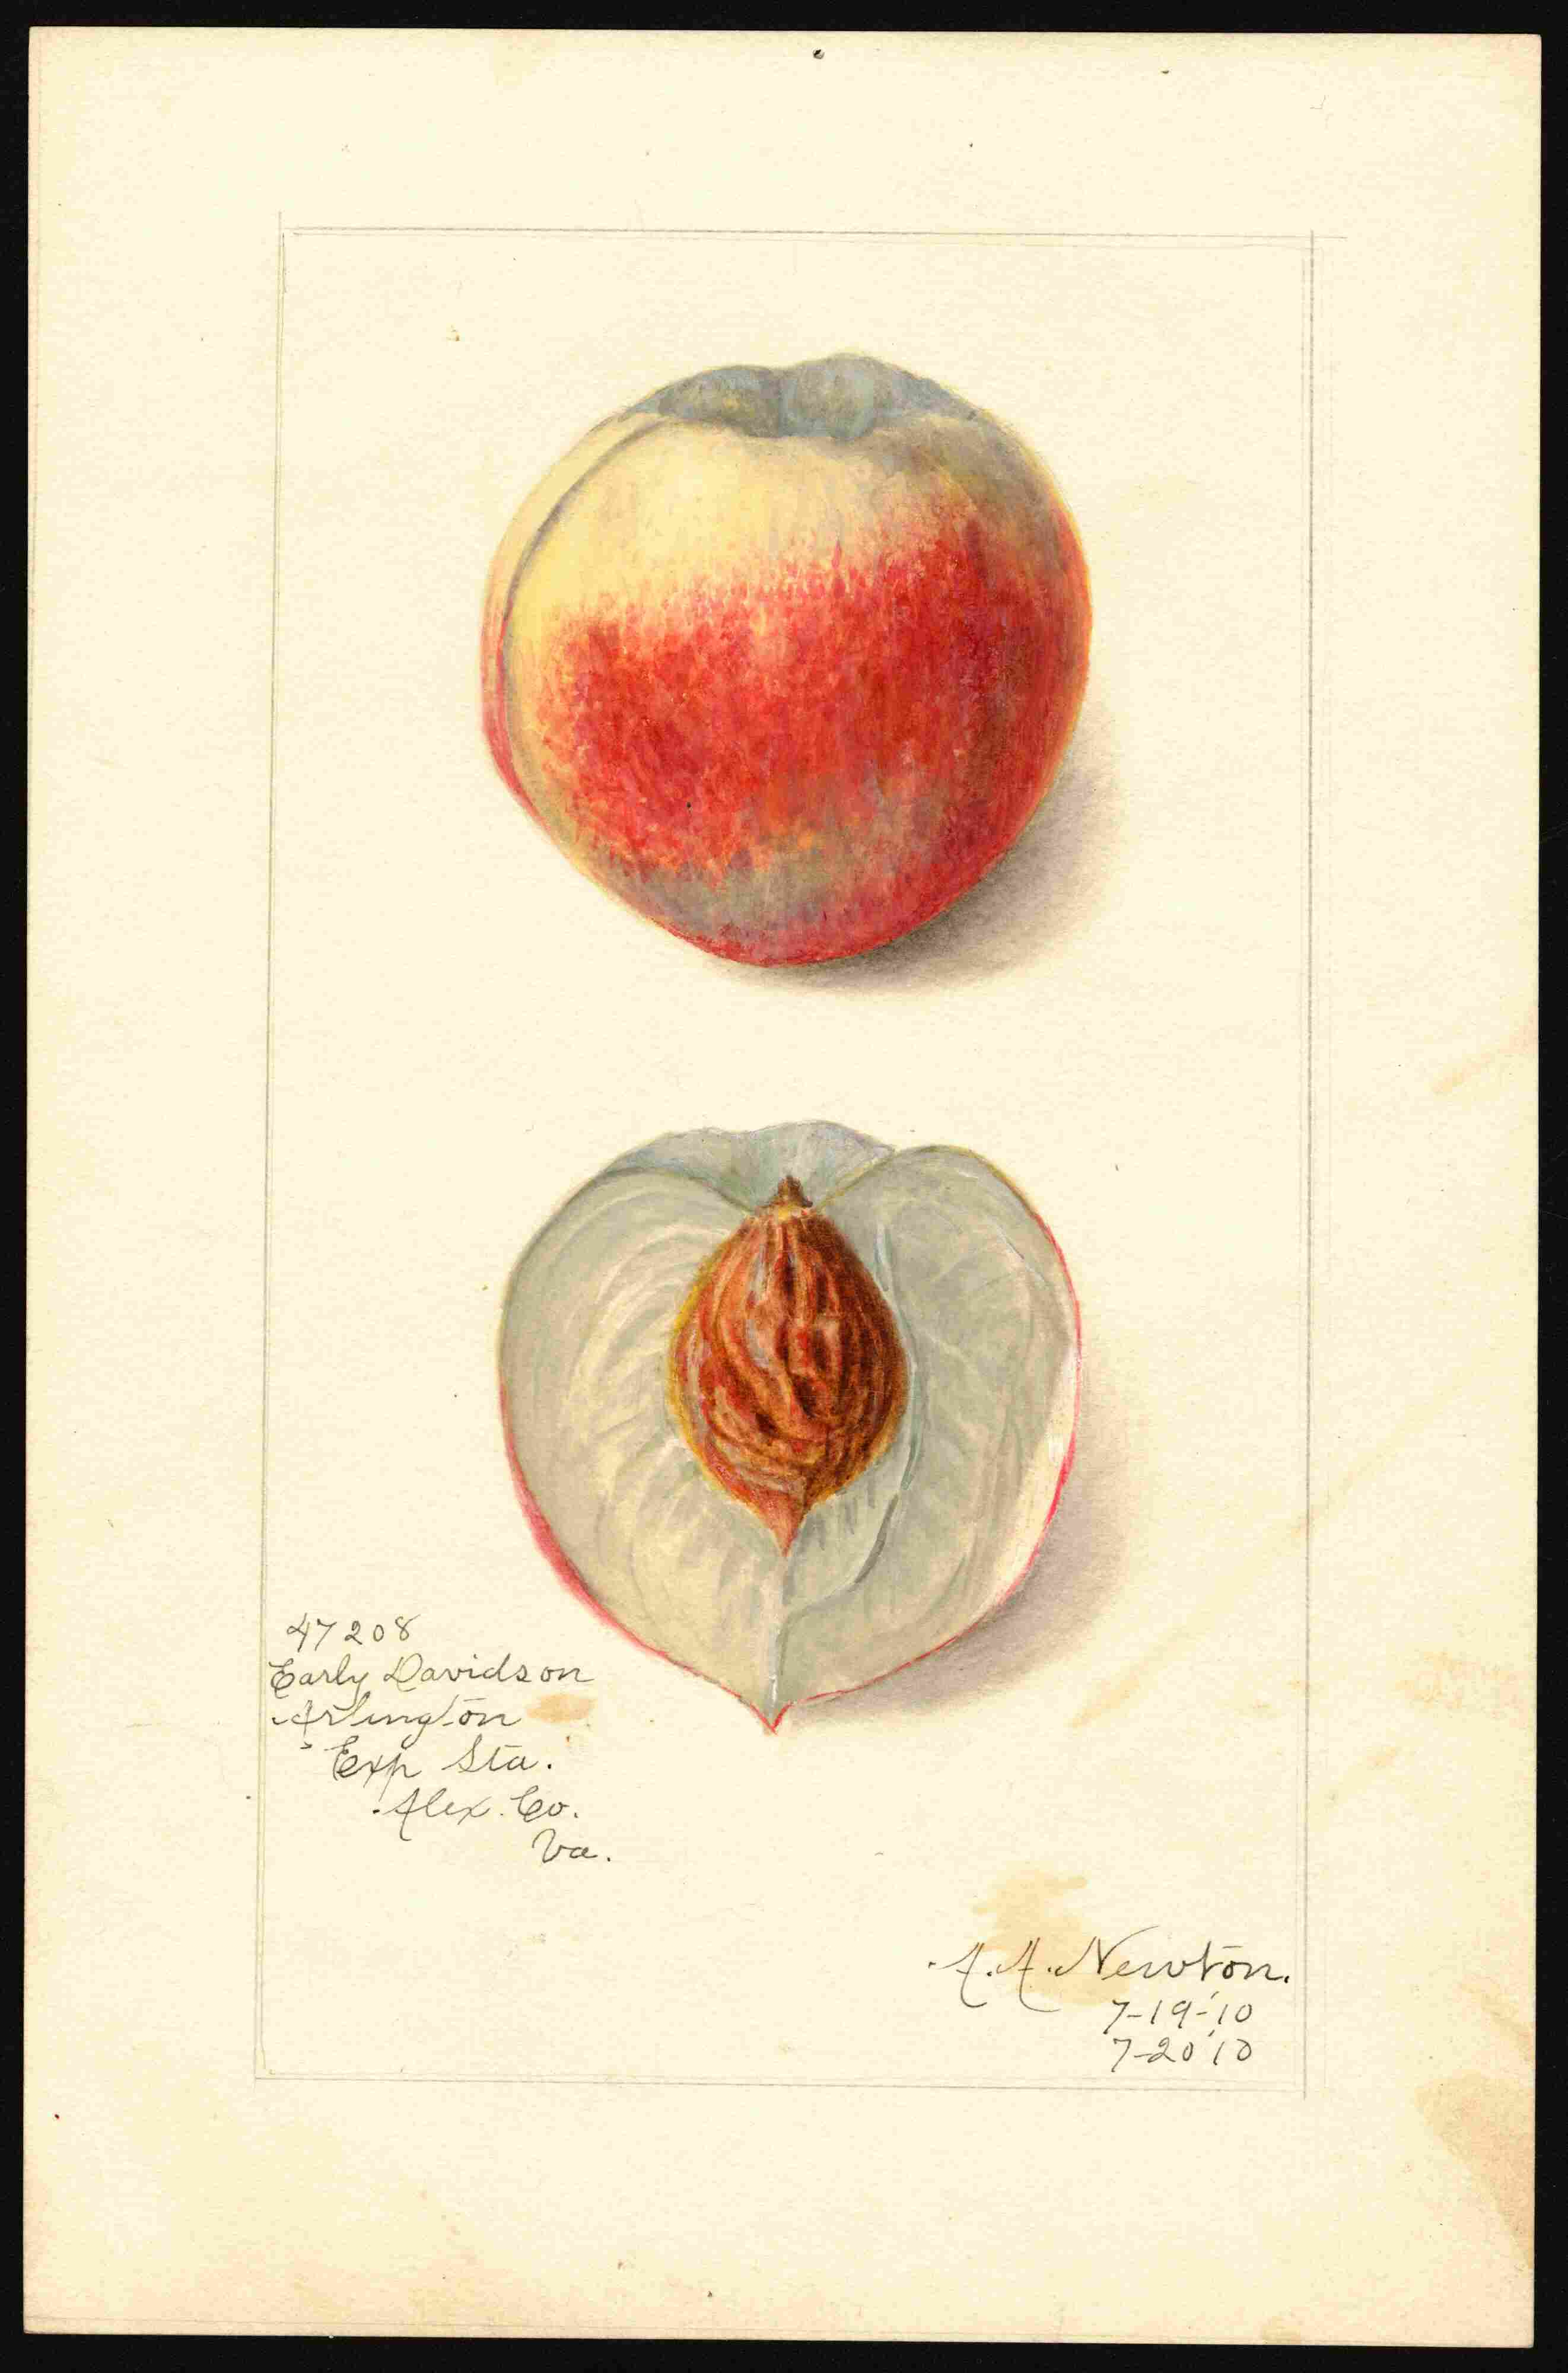 47208
Early Davidson
Arlington
Exp Sta.
Alex. Co.
Va.
A.A. Newton.
7-19-'10
7-20'10